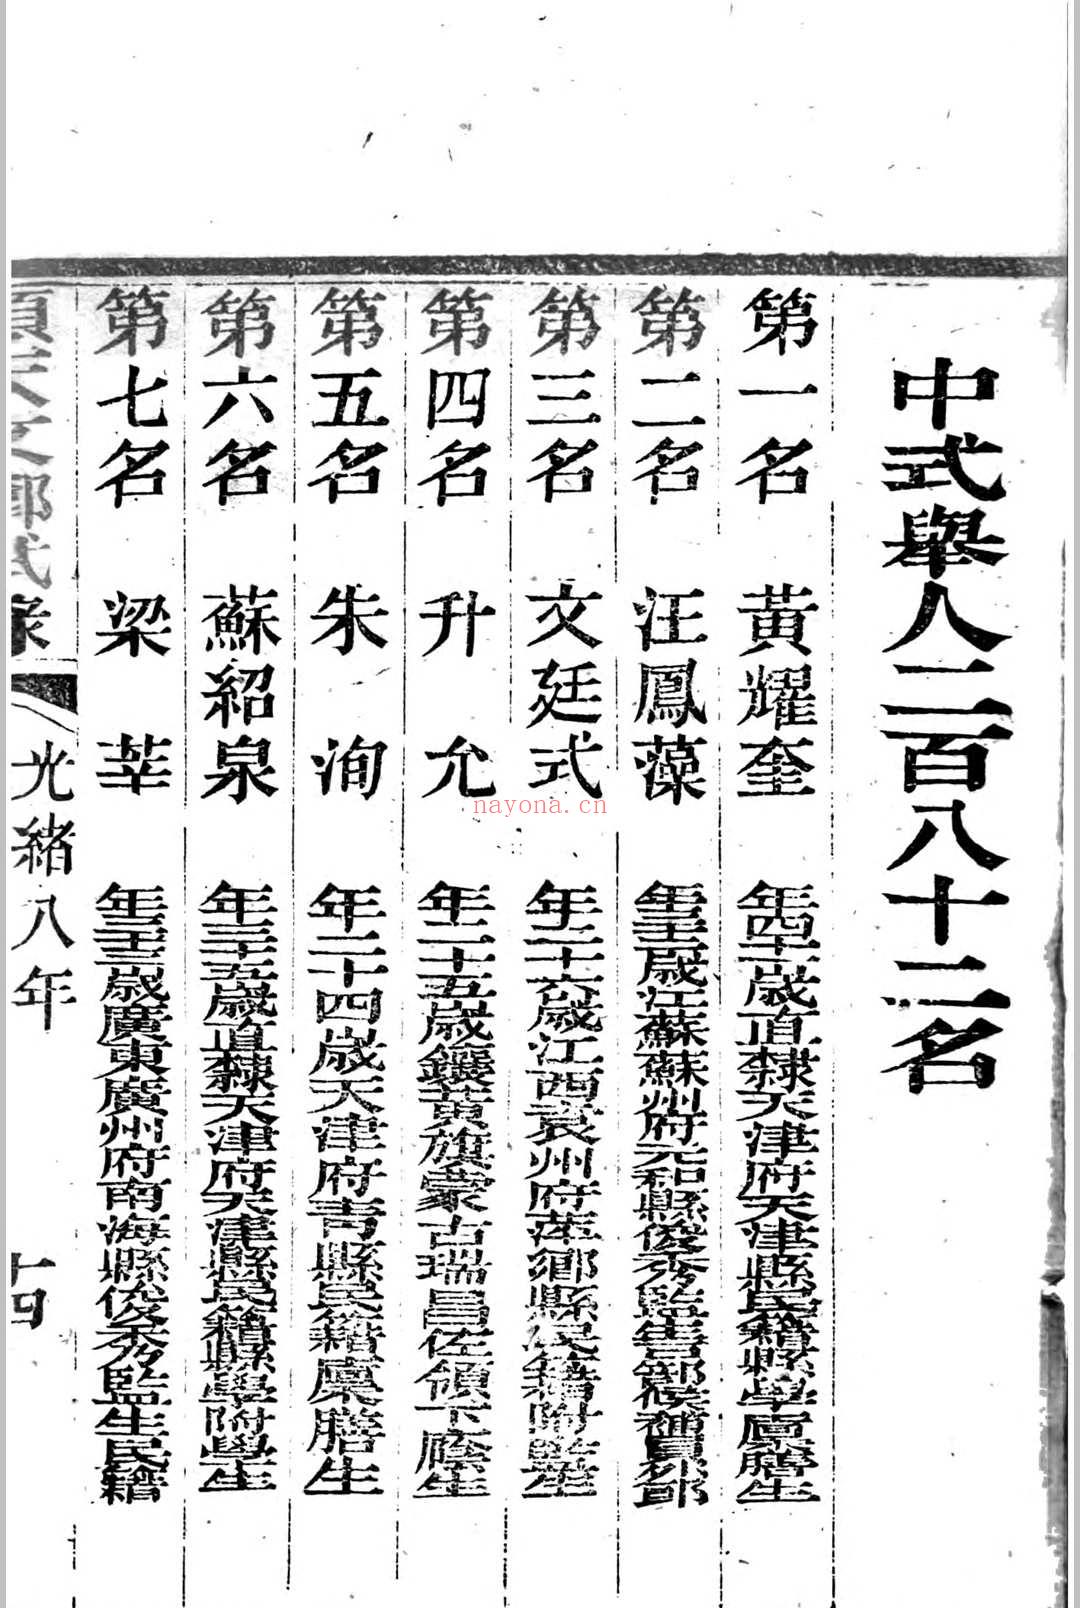 中式舉人二百八十二名
第一名 黃耀奎 年四十歲直隸天津府天津縣民籍縣學廩膳生
第二名 汪鳳藻 年三十歲江蘇蘇州府元和縣俊秀監生戶部候補員外郎
第三名 文廷式 年二十六歲江西袁州府萍鄉縣民籍附監生
第四名 升允 年二十五歲鑲黃旗蒙古瑞昌佐領下廕生
第五名 朱洵 年二十四歲天津府青縣民籍廩膳生
第六名 蘇紹泉 年三十五歲直隸天津府天津縣民籍縣學附學生
第七名 梁莘 年三十三歲廣東廣州府南海縣俊秀監生民籍
順天文鄉試錄 光緒八年 十四
nayona.cn